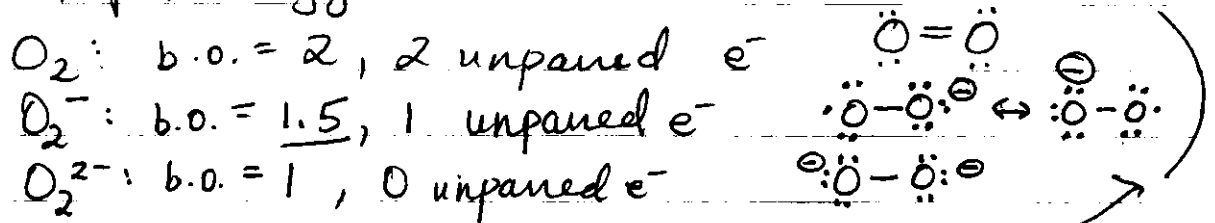 O₂ : b.o. = 2, 2 unpaired e⁻ Ö=Ö
O₂⁻ : b.o. = 1.5, 1 unpaired e⁻ ·O–O:⊖ ↔ ⊖:O–O·
O₂²⁻ : b.o. = 1, 0 unpaired e⁻ ⊖:O–O:⊖